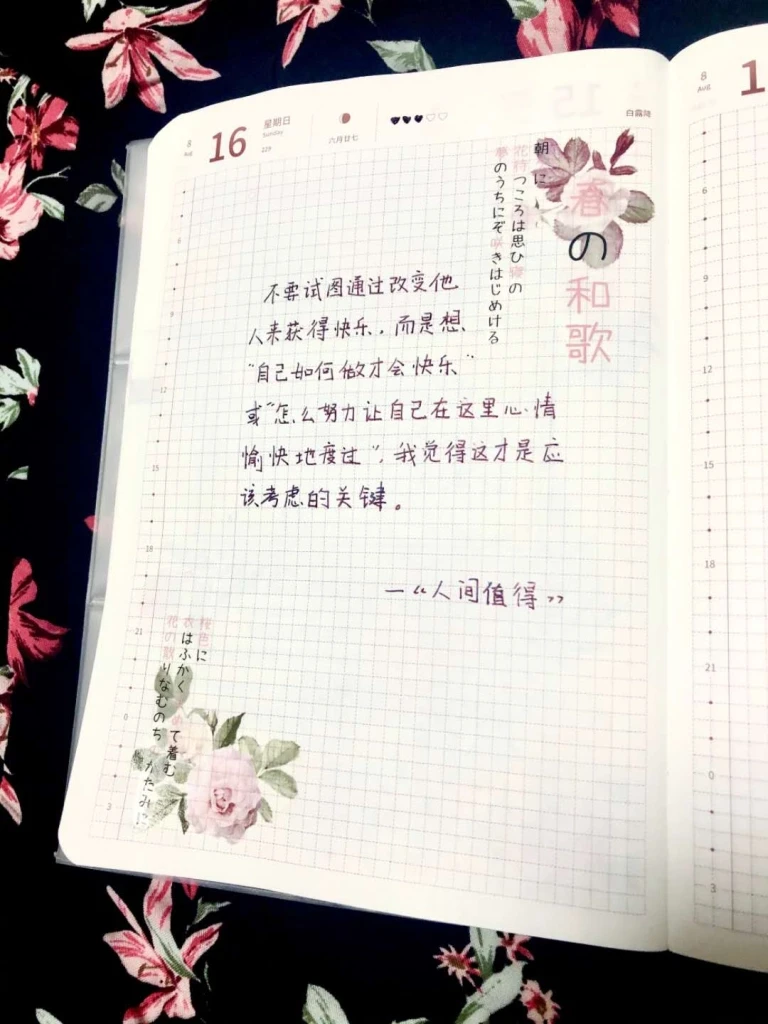 8
Aug
16
星期日
Sunday
229
六月廿七
白露降
春の和歌
朝に
花待つころは思ひ寝の
夢のうちにぞ咲きはじめける
不要试图通过改变他
人来获得快乐，而是想
“自己如何做才会快乐”
或“怎么努力让自己在这里心情
愉快地度过”，我觉得这才是应
该考虑的关键。
—“人间值得”
桜色に
衣はふかく
て着む
花の散りなむのち
かたみに
6
9
12
15
18
21
0
3
8
Aug
1
6
9
12
15
18
21
0
3